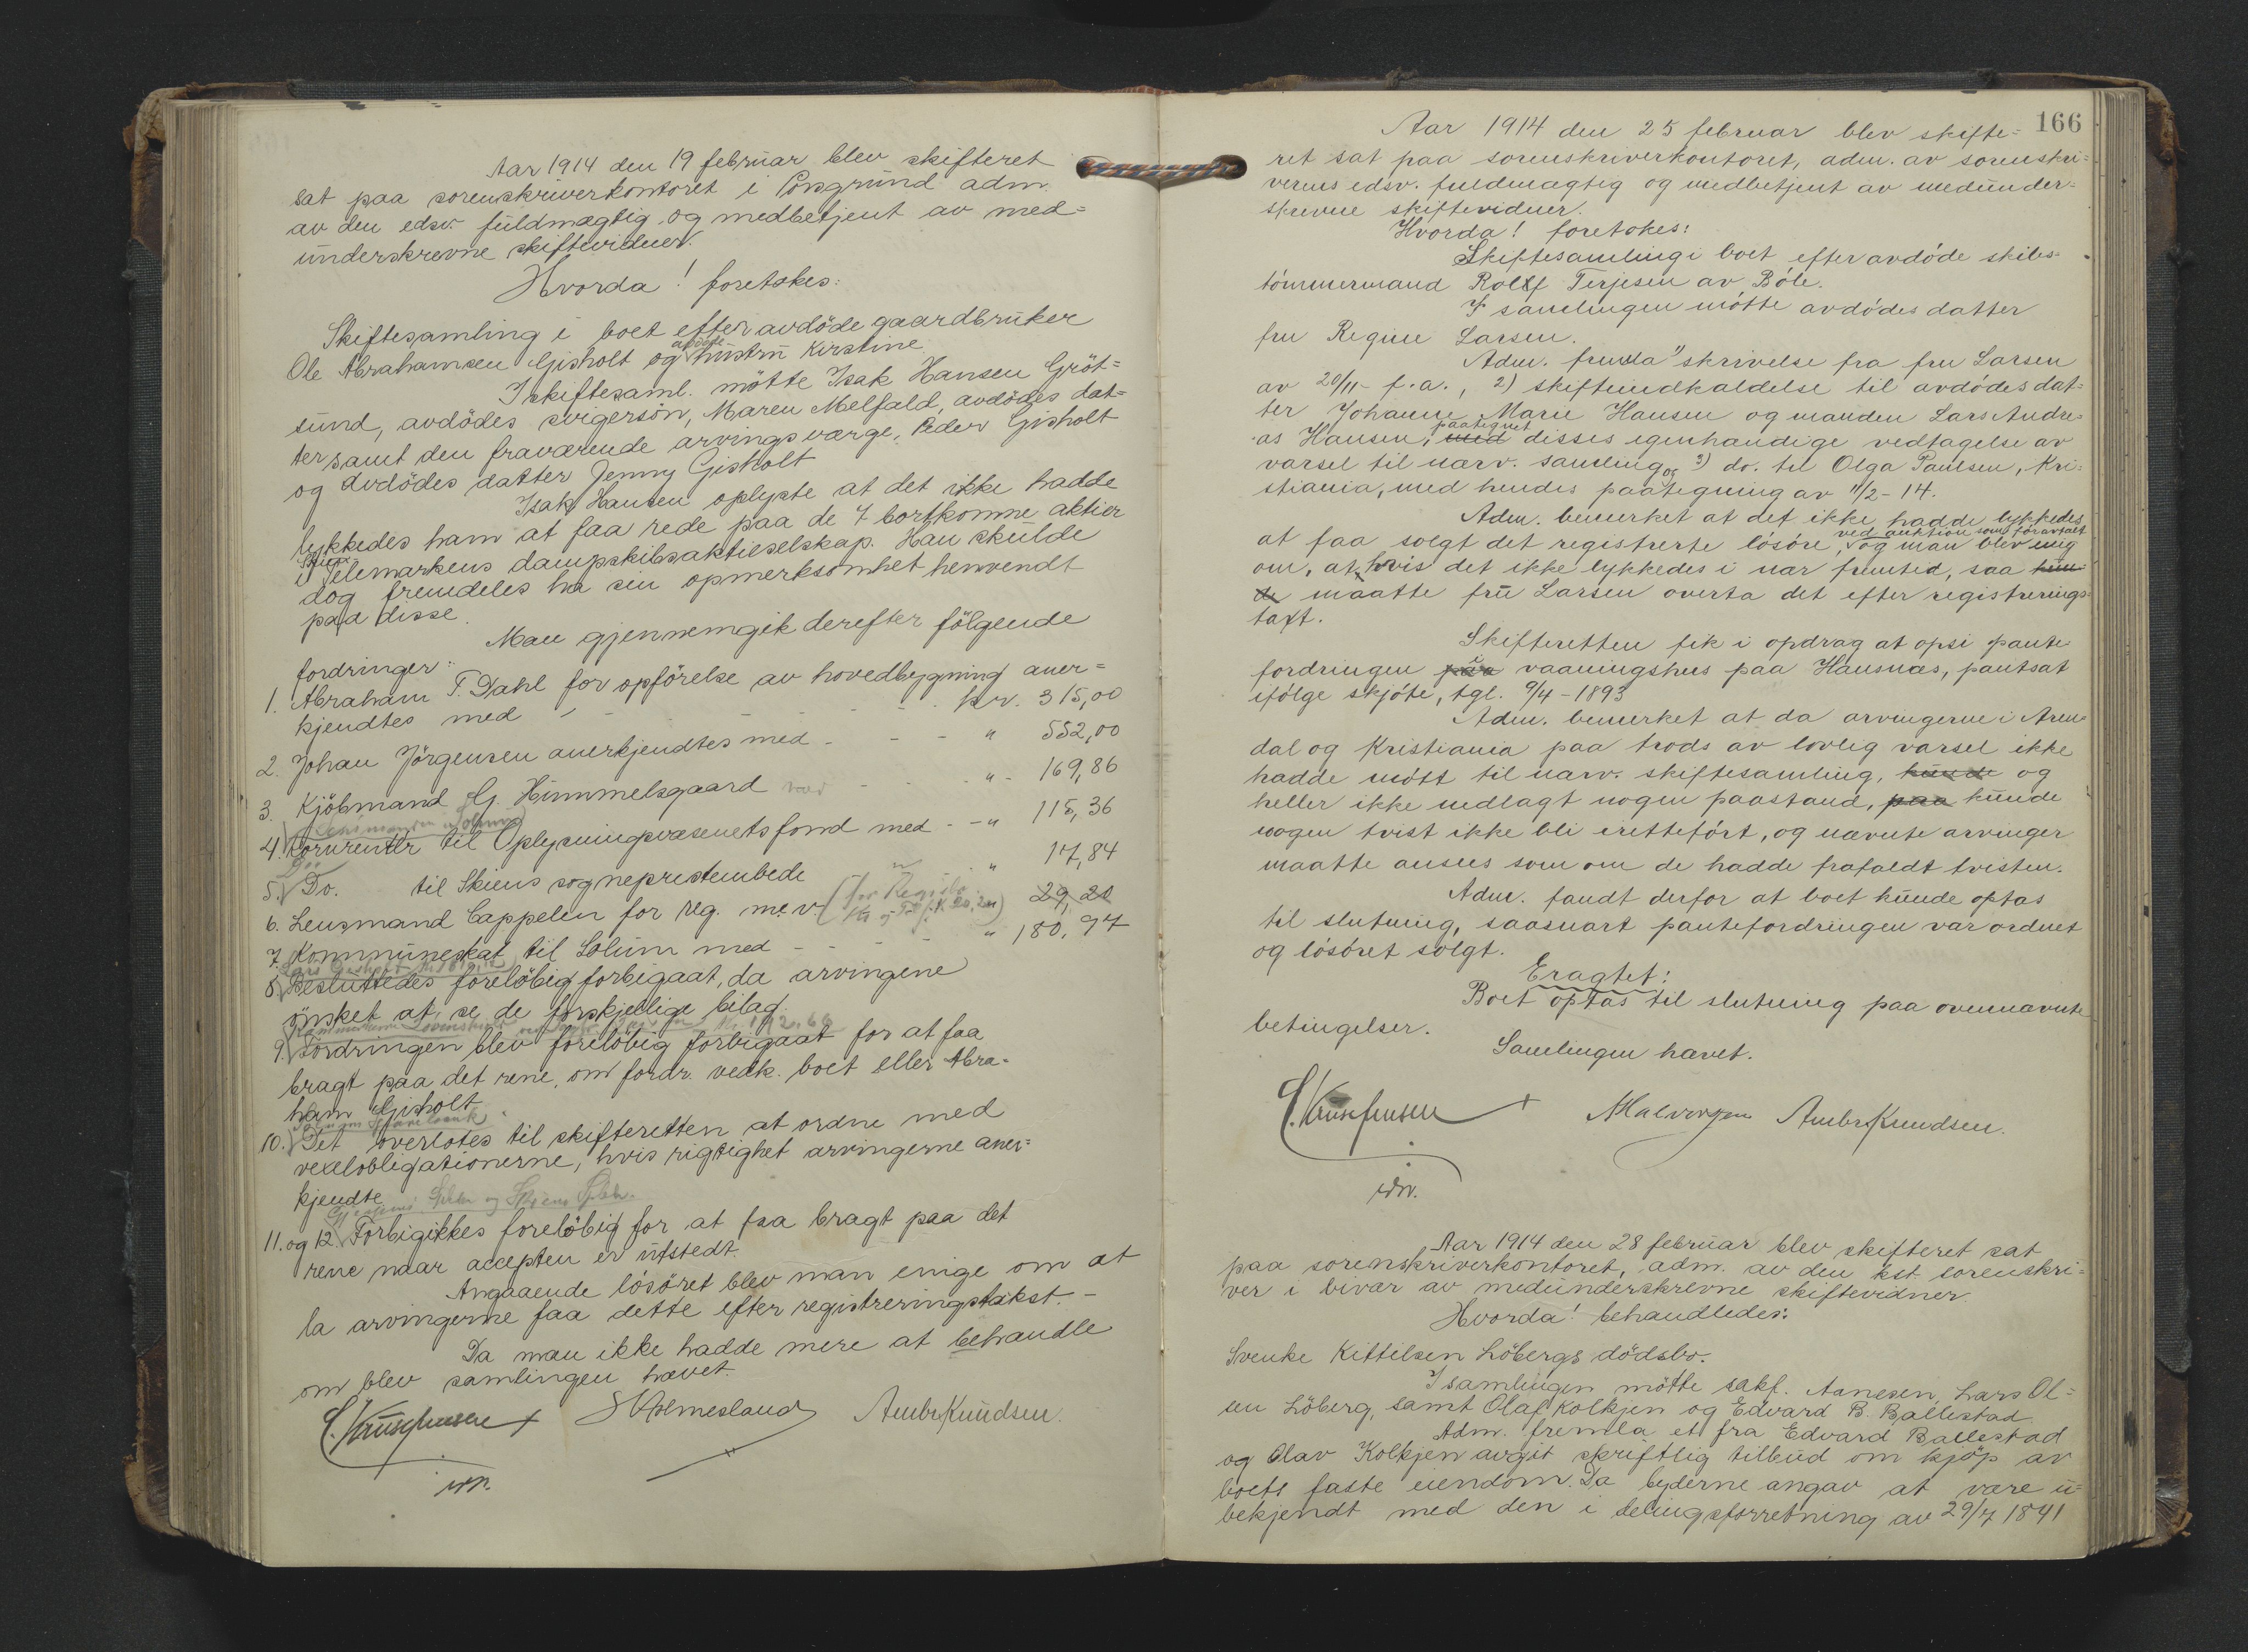 Aar 1914 den 19 februar blev skifteret
sat paa sorenskriverkontoret i Porsgrund adm.
av den edsv. fuldmægtig og medbetjent av med=
underskrevne skiftevidner.
Hvorda! foretokes:
Skiftesamling i boet efter avdöde gaardbruker
Ole Abrahamsen Gisholt og avdöde hustru Kirstine.
I skiftesaml. mötte Isak Hansen Gröt=
sund, avdödes svigersön, Maren Melfald, avdödes dat=
ter samt den fraværende arvings værge, Peder Gisholt
og avdödes datter Jenny Gisholt
Isak Hansen oplyste at det ikke hadde
lykkedes ham at faa rede paa de 7 bortkomne aktier
i Skiens Telemarkens dampskibsaktieselskap. Han skulde
dog fremdeles ha sin opmerksomhet henvendt
paa disse.
Man gjennemgik derefter fölgende
fordringer:
1. Abraham T. Dahl for opförelse av hovedbygning aner=
kjendtes med - - - - - kr. 315,00
2. Johan Jörgensen anerkjendtes med - - - " 552,00
3. Kjöbmand G. Himmelsgaard - - " - 169,86
4. Kornrenter til Oplysningsvæsenets fond med - - " 115,36
5. Do. til Skiens sogneprestembede " 17,84
6. Lensmand Cappelen for reg. m.v. 29,20
7. Kommuneskat til Solum med - - - - " 180,97
8. Besluttedes foreløbig forbigaat, da arvingene
önsket at se de forskjellige bilag.
9. Fordringen blev foreløbig forbigaat for at faa
bragt paa det rene, om fordr. vedk. boet eller Abra=
ham Gisholt
10. Det overlotes til skifteretten at ordne med
vexelobligationerne, hvis rigtighet arvingerne aner=
kjendte
11. og 12. Forbigikkes foreløbig for at faa bragt paa det
rene naar accepten er utstedt.
Angaaende lösöret blev man enige om at
la arvingerne faa dette efter registreringstakst. -
Da man ikke hadde mere at behandle
om blev samlingen hævet.
S Holmesland Ambr Knudsen.
166
Aar 1914 den 25 februar blev skifte=
ret sat paa sorenskriverkontoret, adm. av sorenskri=
verens edsv. fuldmægtig og medbetjent av medunder=
skrevne skiftevidner.
Hvorda! foretokes:
Skiftesamling i boet efter avdöde skibs=
tömmermand Rolf Terjesen av Böle.
I samlingen mötte avdödes datter
fru Regine Larsen.
Adm. fremla 1) skrivelse fra fru Larsen
av 20/11 - f.a., 2) skifteindkaldelse til avdödes dat=
ter Johanne Marie Hansen og manden Lars Andre=
as Hansen, paategnet med disses egenhændige vedtagelse av
varsel til nærv. samling og 3) do. til Olga Paulsen, Kri=
stiania, med hendes paategning av 11/2 - 14.
Adm. bemerket at det ikke hadde lykkedes
at faa solgt det registrerte lösöre, ved auktion som foravtalt og man blev enig
om, at hvis det ikke lykkedes i nær fremtid, saa kun=
de maatte fru Larsen overta det efter registrerings=
taxt.
Skifteretten fik i opdrag at opsi pante
fordringen paa vaaningshus paa Hausnæs, pantsat
ifölge skjöte, tgl. 9/4 - 1893
Adm. bemerket at da arvingerne i Aren=
dal og Kristiania paa trods av lovlig varsel ikke
hadde mött til nærv. skiftesamling, kunde og
heller ikke nedlagt nogen paastand, paa kunde
nogen tvist ikke bli irettefört, og nævnte arvinger
maatte ansees som om de hadde frafaldt tvisten.
Adm. fandt derfor at boet kunde optas
til slutning, saasnart pantefordringen var ordnet
og lösöret solgt.
Eragtet:
Boet optas til slutning paa ovennævnte
betingelser.
Samlingen hævet.
N Halvorsen Ambr Knudsen.
Aar 1914 den 28 februar blev skifteret sat
paa sorenskriverkontoret, adm. av den kst. sorenskri=
ver i bivær av medunderskrevne skiftevidner.
Hvorda! behandledes:
Svenke Kittelsen Löbergs dödsbo.
I samlingen mötte sakf. Aanesen, Lars Ol=
sen Löberg, samt Olaf Kolkjen og Edvard B. Ballestad
Adm. fremla et fra Edvard Ballestad
og Olav Kolkjen avgit skriftlig tilbud om kjöp av
boets faste eiendom. Da byderne angav at være u=
bekjendt med den i delingsforretning av 29/7 1841